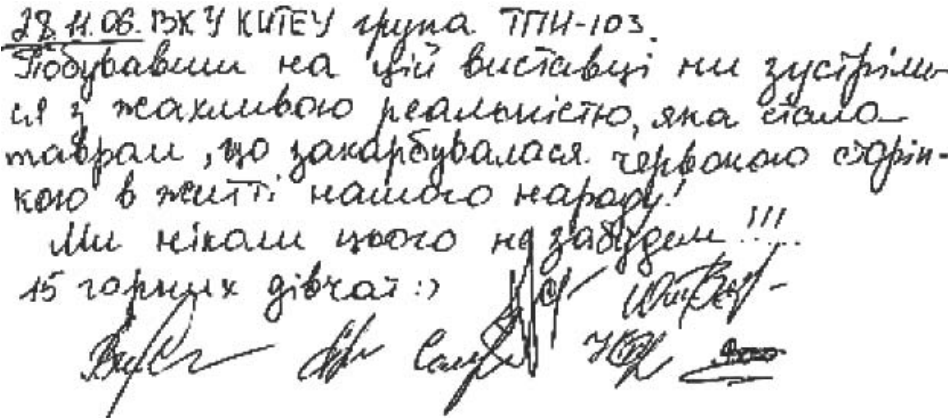 28.11.06. ВКУ КНТЕУ група ТПН-103.
Побувавши на цій виставці ми зустріли-
ся з жахливою реальністю, яка стала
тавром, що закарбувалася червоною сторін-
кою в житті нашого народу!
Ми ніколи цього не забудем!!!
15 горних дівчат :)